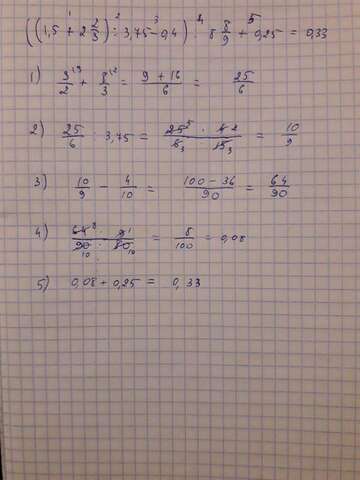 ((1,5 + 2 2/3) : 3,75 - 0,4) : 8 8/9 + 0,25 = 0,33
1) 3/2 + 8/3 = (9 + 16)/6 = 25/6
2) 25/6 : 3,75 = (25 · 4)/(6 · 15) = 10/9
3) 10/9 - 4/10 = (100 - 36)/90 = 64/90
4) (64 · 9)/(90 · 80) = 8/100 = 0,08
5) 0,08 + 0,25 = 0,33